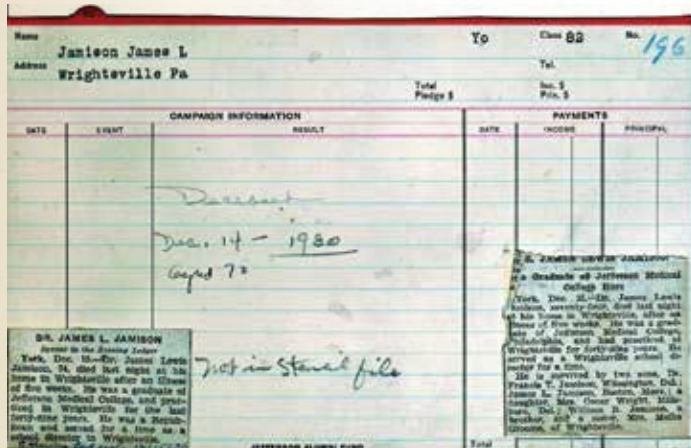 Name
Jamison James L
Yo
Class 82
No.
196
Address
Wrightsville Pa
Tel.
Total
Pledge $
Inc. $
Prin. $
CAMPAIGN INFORMATION
PAYMENTS
DATE
EVENT
RESULT
DATE
INCOME
PRINCIPAL
Deceased
Dec. 14 - 1930
aged 72
Not in Stencil file
DR. JAMES L. JAMISON
Special to the Evening Ledger
York, Dec. —Dr. James Lewis
Jamison, 74, died last night at his
home in Wrightsville after an illness
of five weeks. He was a graduate of
Jefferson Medical College, and prac-
ticed in Wrightsville for the last
forty-nine years. He was a Repub-
lican and served for a time as a
school director in Wrightsville.
JAMES LEWIS JAMISON
a Graduate of Jefferson Medical
College Here
York, Dec. —Dr. James Lewis
Jamison, seventy-four, died last night
at his home in Wrightsville, after an
illness of five weeks. He was a grad-
uate of Jefferson Medical College,
Philadelphia, and had practiced at
Wrightsville for forty-nine years. He
served as a Wrightsville school di-
rector for a time.
He is survived by two sons, Dr.
Francis T. Jamison, Wilmington, Del.;
James L. Jamison, Boston, Mass.; a
daughter, Mrs. Omar Wright, Mills-
boro, Del.; William D. Jamison, a
brother, and a sister, Mrs. Mollie
of Wrightsville.
JEFFERSON ALUMNI FUND
Total